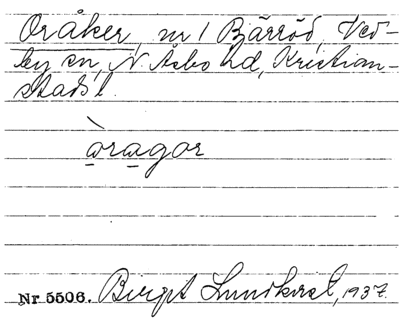 Oråker, nr 1 Bjärröd, Ved-
by sn, N. Åsbo hd, Kristian-
stads l.
òragor
Nr 5506. Birgit Lundkvist, 1937.